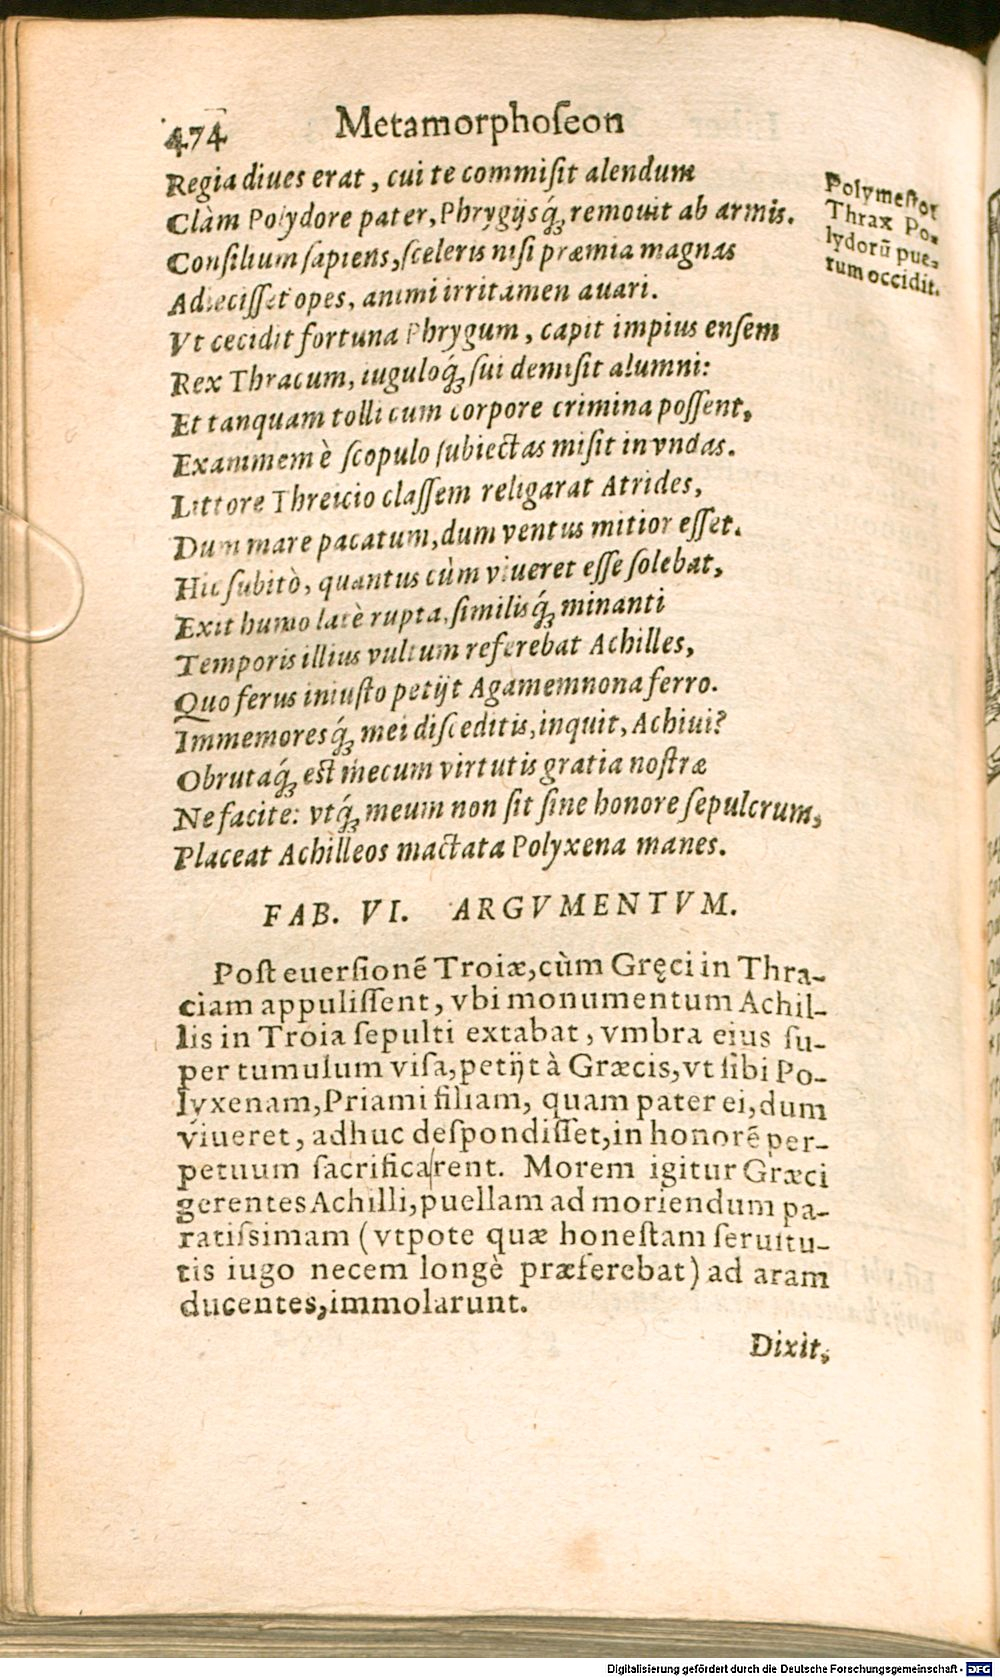 474 Metamorphoſeon
Regia diues erat, cui te commiſit alendum
Clàm Polydore pater, Phrygijsq́; remouit ab armis.
Conſilium ſapiens, ſceleris niſi præmia magnas
Adieciſſet opes, animi irritamen auari.
Vt cecidit fortuna Phrygum, capit impius enſem
Rex Thracum, iuguloq́; ſui demiſit alumni:
Et tanquam tolli cum corpore crimina poſſent,
Exanimem è ſcopulo ſubiectas miſit in vndas.
Littore Threicio claſſem religarat Atrides,
Dum mare pacatum, dum ventus mitior eſſet.
Hic ſubitò, quantus cùm viueret eſſe ſolebat,
Exit humo latè rupta, ſimilisq́; minanti
Temporis illius vultum referebat Achilles,
Quo ferus iniuſto petijt Agamemnona ferro.
Immemoresq́; mei diſceditis, inquit, Achiui?
Obrutaq́; eſt mecum virtutis gratia noſtræ
Ne facite: vtq́; meum non ſit ſine honore ſepulcrum,
Placeat Achilleos mactata Polyxena manes.
Polymeſtor
Thrax Po-
lydorū pue-
rum occidit.
FAB. VI. ARGVMENTVM.
Poſt euerſionē Troiæ, cùm Gręci in Thra-
ciam appuliſſent, vbi monumentum Achil-
lis in Troia ſepulti extabat, vmbra eius ſu-
per tumulum viſa, petijt à Græcis, vt ſibi Po-
lyxenam, Priami filiam, quam pater ei, dum
viueret, adhuc deſpondiſſet, in honorē per-
petuum ſacrificarent. Morem igitur Græci
gerentes Achilli, puellam ad moriendum pa-
ratiſsimam (vtpote quæ honeſtam ſeruitu-
tis iugo necem longè præferebat) ad aram
ducentes, immolarunt.
Dixit,
Digitalisierung gefördert durch die Deutsche Forschungsgemeinschaft - DFG